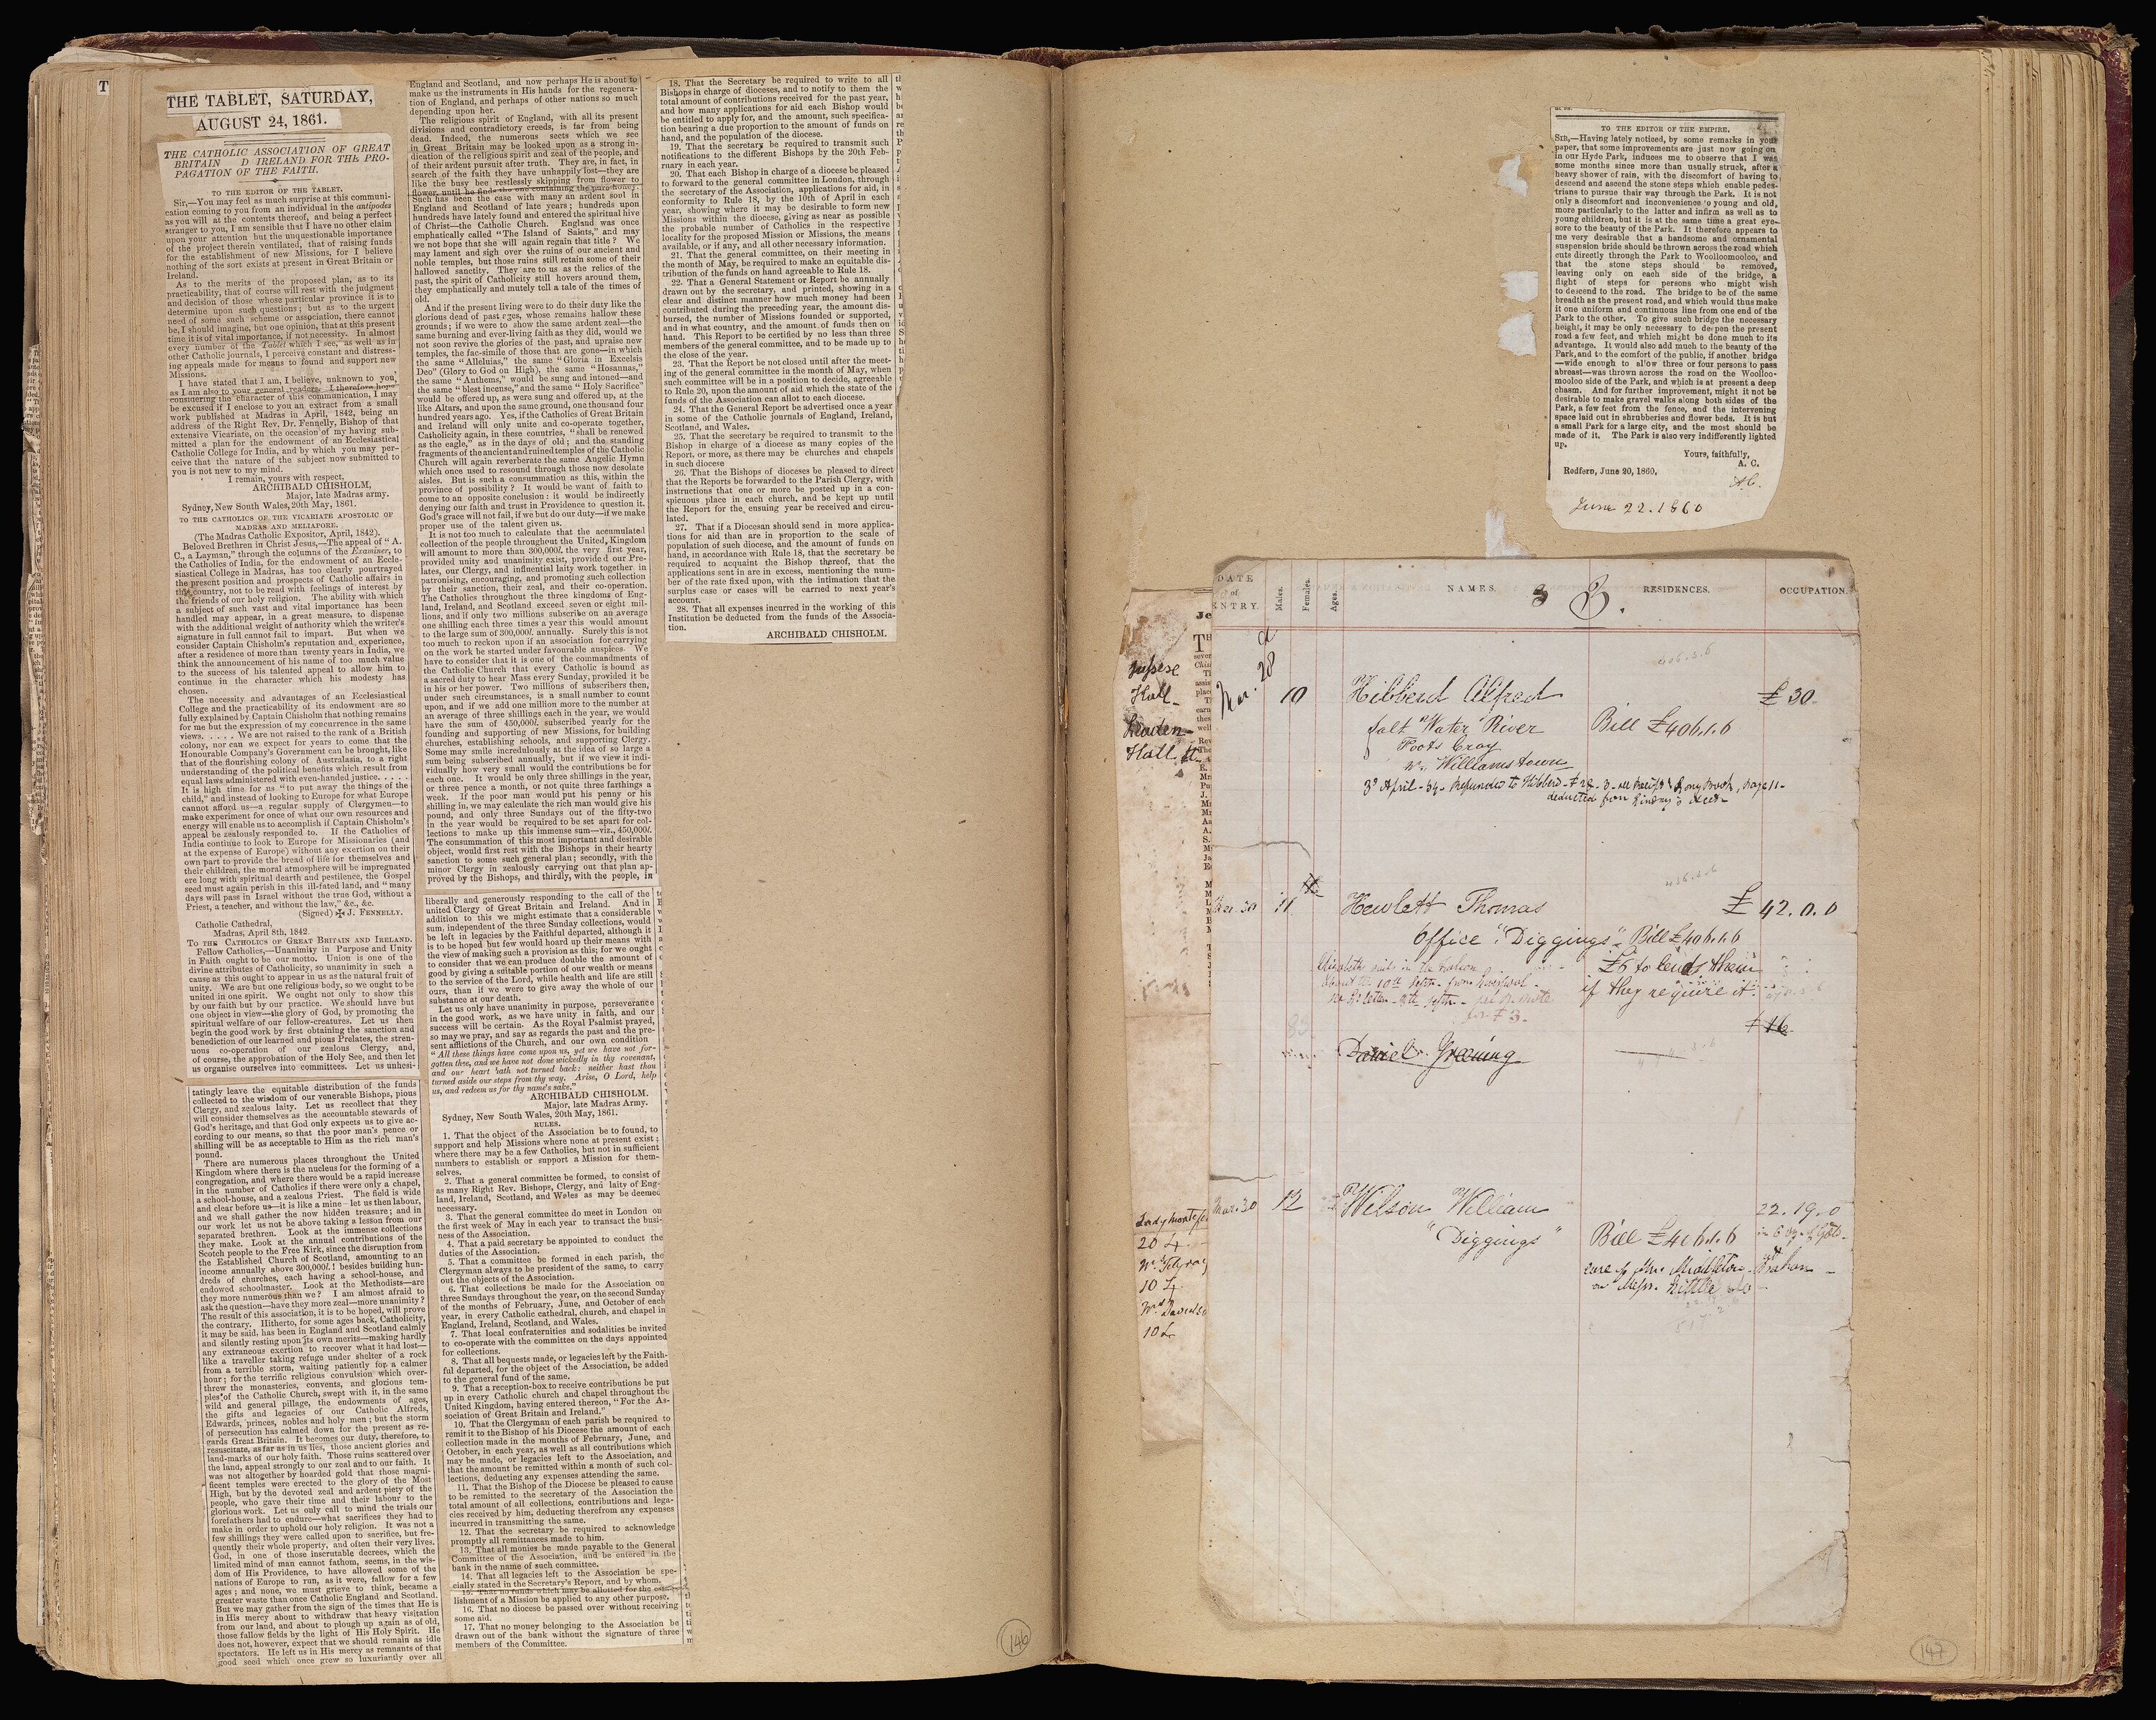 T
THE TABLET, SATURDAY,
AUGUST 24, 1861.
THE CATHOLIC ASSOCIATION OF GREAT
BRITAIN D IRELAND FOR THE PRO-
PAGATION OF THE FAITH.
TO THE EDITOR OF THE TABLET.
Sir,—You may feel as much surprise at this communi-
cation coming to you from an individual in the antipodes
as you will at the contents thereof, and being a perfect
stranger to you, I am sensible that I have no other claim
upon your attention but the unquestionable importance
of the project therein ventilated, that of raising funds
for the establishment of new Missions, for I believe
nothing of the sort exists at present in Great Britain or
Ireland.
As to the merits of the proposed plan, as to its
practicability, that of course will rest with the judgment
and decision of those whose particular province it is to
determine upon such questions; but as to the urgent
need of some such scheme or association, there cannot
be, I should imagine, but one opinion, that at this present
time it is of vital importance, if not necessity. In almost
every number of the Tablet which I see, as well as in
other Catholic journals, I perceive constant and distress-
ing appeals made for means to found and support new
Missions.
I have stated that I am, I believe, unknown to you,
as I am also to your general readers. I therefore hope
considering the character of this communication, I may
be excused if I enclose to you an extract from a small
work published at Madras in April, 1842, being an
address of the Right Rev. Dr. Fennelly, Bishop of that
extensive Vicariate, on the occasion of my having sub-
mitted a plan for the endowment of an Ecclesiastical
Catholic College for India, and by which you may per-
ceive that the nature of the subject now submitted to
you is not new to my mind.
I remain, yours with respect,
ARCHIBALD CHISHOLM,
Major, late Madras army.
Sydney, New South Wales, 20th May, 1861.
TO THE CATHOLICS OF THE VICARIATE APOSTOLIC OF
MADRAS AND MELIAPORE.
(The Madras Catholic Expositor, April, 1842).
Beloved Brethren in Christ Jesus,—The appeal of "A.
C., a Layman," through the columns of the Examiner, to
the Catholics of India, for the endowment of an Eccle-
siastical College in Madras, has too clearly pourtrayed
the present position and prospects of Catholic affairs in
this country, not to be read with feelings of interest by
the friends of our holy religion. The ability with which
a subject of such vast and vital importance has been
handled may appear, in a great measure, to dispense
with the additional weight of authority which the writer's
signature in full cannot fail to impart. But when we
consider Captain Chisholm's reputation and experience,
after a residence of more than twenty years in India, we
think the announcement of his name of too much value
to the success of his talented appeal to allow him to
continue in the character which his modesty has
chosen.
The necessity and advantages of an Ecclesiastical
College and the practicability of its endowment are so
fully explained by Captain Chisholm that nothing remains
for me but the expression of my concurrence in the same
views. . . . . . We are not raised to the rank of a British
colony, nor can we expect for years to come that the
Honourable Company's Government can be brought, like
that of the flourishing colony of Australasia, to a right
understanding of the political benefits which result from
equal laws administered with even-handed justice. . . . . .
It is high time for us "to put away the things of the
child," and instead of looking to Europe for what Europe
cannot afford us—a regular supply of Clergymen—to
make experiment for once of what our own resources and
energy will enable us to accomplish if Captain Chisholm's
appeal be zealously responded to. If the Catholics of
India continue to look to Europe for Missionaries (and
at the expense of Europe) without any exertion on their
own part to provide the bread of life for themselves and
their children, the moral atmosphere will be impregnated
ere long with spiritual dearth and pestilence, the Gospel
seed must again perish in this ill-fated land, and "many
days will pass in Israel without the true God, without a
Priest, a teacher, and without the law," &c., &c.
(Signed) ✠ J. FENNELLY.
Catholic Cathedral,
Madras, April 8th, 1842.
TO THE CATHOLICS OF GREAT BRITAIN AND IRELAND.
Fellow Catholics,—Unanimity in Purpose and Unity
in Faith ought to be our motto. Union is one of the
divine attributes of Catholicity, so unanimity in such a
cause as this ought to appear in us as the natural fruit of
unity. We are but one religious body, so we ought to be
united in one spirit. We ought not only to show this
by our faith but by our practice. We should have but
one object in view—the glory of God, by promoting the
spiritual welfare of our fellow-creatures. Let us then
begin the good work by first obtaining the sanction and
benediction of our learned and pious Prelates, the stren-
uous co-operation of our zealous Clergy, and,
of course, the approbation of the Holy See, and then let
us organise ourselves into committees. Let us unhesi-
tatingly leave the equitable distribution of the funds
collected to the wisdom of our venerable Bishops, pious
Clergy, and zealous laity. Let us recollect that they
will consider themselves as the accountable stewards of
God's heritage, and that God only expects us to give ac-
cording to our means, so that the poor man's pence or
shilling will be as acceptable to Him as the rich man's
pound.
There are numerous places throughout the United
Kingdom where there is the nucleus for the forming of a
congregation, and where there would be a rapid increase
in the number of Catholics if there were only a chapel,
a school-house, and a zealous Priest. The field is wide
and clear before us—it is like a mine—let us then labour,
and we shall gather the now hidden treasure; and in
our work let us not be above taking a lesson from our
separated brethren. Look at the immense collections
they make. Look at the annual contributions of the
Scotch people to the Free Kirk, since the disruption from
the Established Church of Scotland, amounting to an
income annually above 300,000l.! besides building hun-
dreds of churches, each having a school-house, and
endowed schoolmaster. Look at the Methodists—are
they more numerous than we? I am almost afraid to
ask the question—have they more zeal—more unanimity?
The result of this association, it is to be hoped, will prove
the contrary. Hitherto, for some ages back, Catholicity,
it may be said, has been in England and Scotland calmly
and silently resting upon its own merits—making hardly
any extraneous exertion to recover what it had lost—
like a traveller taking refuge under shelter of a rock
from a terrible storm, waiting patiently for a calmer
hour; for the terrific religious convulsion which over-
threw the monasteries, convents, and glorious tem-
ples of the Catholic Church, swept with it, in the same
wild and general pillage, the endowments of ages,
the gifts and legacies of our Catholic Alfreds,
Edwards, princes, nobles and holy men; but the storm
of persecution has calmed down for the present as re-
gards Great Britain. It becomes our duty, therefore, to
resuscitate, as far as in us lies, those ancient glories and
land-marks of our holy faith. Those ruins scattered over
the land, appeal strongly to our zeal and to our faith. It
was not altogether by hoarded gold that those magni-
ficent temples were erected to the glory of the Most
High, but by the devoted zeal and ardent piety of the
people, who gave their time and their labour to the
glorious work. Let us only call to mind the trials our
forefathers had to endure—what sacrifices they had to
make in order to uphold our holy religion. It was not a
few shillings they were called upon to sacrifice, but fre-
quently their whole property, and often their very lives.
God, in one of those inscrutable decrees, which the
limited mind of man cannot fathom, seems, in the wis-
dom of His Providence, to have allowed some of the
nations of Europe to run, as it were, fallow for a few
ages; and none, we must grieve to think, became a
greater waste than once Catholic England and Scotland.
But we may gather from the sign of the times that He is
in His mercy about to withdraw that heavy visitation
from our land, and about to plough up again as of old,
those fallow fields by the light of His Holy Spirit. He
does not, however, expect that we should remain as idle
spectators. He left us in His mercy as remnants of that
good seed which once grew so luxuriantly over all
England and Scotland, and now perhaps He is about to
make us the instruments in His hands for the regenera-
tion of England, and perhaps of other nations so much
depending upon her.
The religious spirit of England, with all its present
divisions and contradictory creeds, is far from being
dead. Indeed, the numerous sects which we see
in Great Britain may be looked upon as a strong in-
dication of the religious spirit and zeal of the people, and
of their ardent pursuit after truth. They are, in fact, in
search of the faith they have unhappily lost—they are
like the busy bee restlessly skipping from flower to
flower, until he finds the one containing the pure honey.
Such has been the case with many an ardent soul in
England and Scotland of late years; hundreds upon
hundreds have lately found and entered the spiritual hive
of Christ—the Catholic Church. England was once
emphatically called "The Island of Saints," and may
we not hope that she will again regain that title? We
may lament and sigh over the ruins of our ancient and
noble temples, but those ruins still retain some of their
hallowed sanctity. They are to us as the relics of the
past, the spirit of Catholicity still hovers around them,
they emphatically and mutely tell a tale of the times of
old.
And if the present living were to do their duty like the
glorious dead of past ages, whose remains hallow these
grounds; if we were to show the same ardent zeal—the
same burning and ever-living faith as they did, would we
not soon revive the glories of the past, and upraise new
temples, the fac-simile of those that are gone—in which
the same "Alleluias," the same "Gloria in Excelsis
Deo" (Glory to God on High), the same "Hosannas,"
the same "Anthems," would be sung and intoned—and
the same "blest incense," and the same "Holy Sacrifice"
would be offered up, as were sung and offered up, at the
like Altars, and upon the same ground, one thousand four
hundred years ago. Yes, if the Catholics of Great Britain
and Ireland will only unite and co-operate together,
Catholicity again, in these countries, "shall be renewed
as the eagle," as in the days of old; and the standing
fragments of the ancient and ruined temples of the Catholic
Church will again reverberate the same Angelic Hymn
which once used to resound through those now desolate
aisles. But is such a consummation as this, within the
province of possibility? It would be want of faith to
come to an opposite conclusion: it would be indirectly
denying our faith and trust in Providence to question it.
God's grace will not fail, if we but do our duty—if we make
proper use of the talent given us.
It is not too much to calculate that the accumulated
collection of the people throughout the United Kingdom
will amount to more than 300,000l. the very first year,
provided unity and unanimity exist, provided our Pre-
lates, our Clergy, and influential laity work together in
patronising, encouraging, and promoting such collection
by their sanction, their zeal, and their co-operation.
The Catholics throughout the three kingdoms of Eng-
land, Ireland, and Scotland exceed seven or eight mil-
lions, and if only two millions subscribe on an average
one shilling each three times a year this would amount
to the large sum of 300,000l. annually. Surely this is not
too much to reckon upon if an association for carrying
on the work be started under favourable auspices. We
have to consider that it is one of the commandments of
the Catholic Church that every Catholic is bound as
a sacred duty to hear Mass every Sunday, provided it be
in his or her power. Two millions of subscribers then,
under such circumstances, is a small number to count
upon, and if we add one million more to the number at
an average of three shillings each in the year, we would
have the sum of 450,000l. subscribed yearly for the
founding and supporting of new Missions, for building
churches, establishing schools, and supporting Clergy.
Some may smile incredulously at the idea of so large a
sum being subscribed annually, but if we view it indi-
vidually how very small would the contributions be for
each one. It would be only three shillings in the year,
or three pence a month, or not quite three farthings a
week. If the poor man would put his penny or his
shilling in, we may calculate the rich man would give his
pound, and only three Sundays out of the fifty-two
in the year would be required to be set apart for col-
lections to make up this immense sum—viz., 450,000l.
The consummation of this most important and desirable
object, would first rest with the Bishops in their hearty
sanction to some such general plan; secondly, with the
minor Clergy in zealously carrying out that plan ap-
proved by the Bishops, and thirdly, with the people, in
liberally and generously responding to the call of the
united Clergy of Great Britain and Ireland. And in
addition to this we might estimate that a considerable
sum, independent of the three Sunday collections, would
be left in legacies by the Faithful departed, although it
is to be hoped but few would hoard up their means with
the view of making such a provision as this; for we ought
to consider that we can produce double the amount of
good by giving a suitable portion of our wealth or means
to the service of the Lord, while health and life are still
ours, than if we were to give away the whole of our
substance at our death.
Let us only have unanimity in purpose, perseverance
in the good work, as we have unity in faith, and our
success will be certain. As the Royal Psalmist prayed,
so may we pray, and say as regards the past and the pre-
sent afflictions of the Church, and our own condition
"All these things have come upon us, yet we have not for-
gotten thee, and we have not done wickedly in thy covenant,
and our heart hath not turned back: neither hast thou
turned aside our steps from thy way. Arise, O Lord, help
us, and redeem us for thy name's sake."
ARCHIBALD CHISHOLM.
Major, late Madras Army.
Sydney, New South Wales, 20th May, 1861.
RULES.
1. That the object of the Association be to found, to
support and help Missions where none at present exist;
where there may be a few Catholics, but not in sufficient
numbers to establish or support a Mission for them-
selves.
2. That a general committee be formed, to consist of
as many Right Rev. Bishops, Clergy, and laity of Eng-
land, Ireland, Scotland, and Wales as may be deemed
necessary.
3. That the general committee do meet in London on
the first week of May in each year to transact the busi-
ness of the Association.
4. That a paid secretary be appointed to conduct the
duties of the Association.
5. That a committee be formed in each parish, the
Clergyman always to be president of the same, to carry
out the objects of the Association.
6. That collections be made for the Association on
three Sundays throughout the year, on the second Sunday
of the months of February, June, and October of each
year, in every Catholic cathedral, church, and chapel in
England, Ireland, Scotland, and Wales.
7. That local confraternities and sodalities be invited
to co-operate with the committee on the days appointed
for collections.
8. That all bequests made, or legacies left by the Faith-
ful departed, for the object of the Association, be added
to the general fund of the same.
9. That a reception-box to receive contributions be put
up in every Catholic church and chapel throughout the
United Kingdom, having entered thereon, "For the As-
sociation of Great Britain and Ireland."
10. That the Clergyman of each parish be required to
remit it to the Bishop of his Diocese the amount of each
collection made in the months of February, June, and
October, in each year, as well as all contributions which
may be made, or legacies left to the Association, and
that the amount be remitted within a month of such col-
lections, deducting any expenses attending the same.
11. That the Bishop of the Diocese be pleased to cause
to be remitted to the secretary of the Association the
total amount of all collections, contributions and lega-
cies received by him, deducting therefrom any expenses
incurred in transmitting the same.
12. That the secretary be required to acknowledge
promptly all remittances made to him.
13. That all monies be made payable to the General
Committee of the Association, and be entered in the
bank in the name of such committee.
14. That all legacies left to the Association be spe-
cially stated in the Secretary's Report, and by whom.
15. That no funds which may be allotted for the estab-
lishment of a Mission be applied to any other purpose.
16. That no diocese be passed over without receiving
some aid.
17. That no money belonging to the Association be
drawn out of the bank without the signature of three
members of the Committee.
18. That the Secretary be required to write to all
Bishops in charge of dioceses, and to notify to them the
total amount of contributions received for the past year,
and how many applications for aid each Bishop would
be entitled to apply for, and the amount, such specifica-
tion bearing a due proportion to the amount of funds on
hand, and the population of the diocese.
19. That the secretary be required to transmit such
notifications to the different Bishops by the 20th Feb-
ruary in each year.
20. That each Bishop in charge of a diocese be pleased
to forward to the general committee in London, through
the secretary of the Association, applications for aid, in
conformity to Rule 18, by the 10th of April in each
year, showing where it may be desirable to form new
Missions within the diocese, giving as near as possible
the probable number of Catholics in the respective
locality for the proposed Mission or Missions, the means
available, or if any, and all other necessary information.
21. That the general committee, on their meeting in
the month of May, be required to make an equitable dis-
tribution of the funds on hand agreeable to Rule 18.
22. That a General Statement or Report be annually
drawn out by the secretary, and printed, showing in a
clear and distinct manner how much money had been
contributed during the preceding year, the amount dis-
bursed, the number of Missions founded or supported,
and in what country, and the amount of funds then on
hand. This Report to be certified by no less than three
members of the general committee, and to be made up to
the close of the year.
23. That the Report be not closed until after the meet-
ing of the general committee in the month of May, when
such committee will be in a position to decide, agreeable
to Rule 20, upon the amount of aid which the state of the
funds of the Association can allot to each diocese.
24. That the General Report be advertised once a year
in some of the Catholic journals of England, Ireland,
Scotland, and Wales.
25. That the secretary be required to transmit to the
Bishop in charge of a diocese as many copies of the
Report, or more, as there may be churches and chapels
in such diocese
26. That the Bishops of dioceses be pleased to direct
that the Reports be forwarded to the Parish Clergy, with
instructions that one or more be posted up in a con-
spicuous place in each church, and be kept up until
the Report for the ensuing year be received and circu-
lated.
27. That if a Diocesan should send in more applica-
tions for aid than are in proportion to the scale of
population of such diocese, and the amount of funds on
hand, in accordance with Rule 18, that the secretary be
required to acquaint the Bishop thereof, that the
applications sent in are in excess, mentioning the num-
ber of the rate fixed upon, with the intimation that the
surplus case or cases will be carried to next year's
account.
28. That all expenses incurred in the working of this
Institution be deducted from the funds of the Associa-
tion.
ARCHIBALD CHISHOLM.
146
TO THE EDITOR OF THE EMPIRE.
SIR,—Having lately noticed, by some remarks in your
paper, that some improvements are just now going on
in our Hyde Park, induces me to observe that I was
some months since more than usually struck, after a
heavy shower of rain, with the discomfort of having to
descend and ascend the stone steps which enable pedes-
trians to pursue their way through the Park. It is not
only a discomfort and inconvenience to young and old,
more particularly to the latter and infirm as well as to
young children, but it is at the same time a great eye-
sore to the beauty of the Park. It therefore appears to
me very desirable that a handsome and ornamental
suspension bride should be thrown across the road which
cuts directly through the Park to Woolloomooloo, and
that the stone steps should be removed,
leaving only on each side of the bridge, a
flight of steps for persons who might wish
to descend to the road. The bridge to be of the same
breadth as the present road, and which would thus make
it one uniform and continuous line from one end of the
Park to the other. To give such bridge the necessary
height, it may be only necessary to deepen the present
road a few feet, and which might be done much to its
advantage. It would also add much to the beauty of the
Park, and to the comfort of the public, if another bridge
—wide enough to allow three or four persons to pass
abreast—was thrown across the road on the Woolloo-
mooloo side of the Park, and which is at present a deep
chasm. And for further improvement, might it not be
desirable to make gravel walks along both sides of the
Park, a few feet from the fence, and the intervening
space laid out in shrubberies and flower beds. It is but
a small Park for a large city, and the most should be
made of it. The Park is also very indifferently lighted
up.
Yours, faithfully,
A. C.
Redfern, June 20, 1860.
A.C.
June 22. 1860
Hall-
Leaden-
Hall St.
20 £
10 £
10 £
DATE of ENTRY. Males. Females. Ages. NAMES. RESIDENCES. OCCUPATION.
3 B.
406.1.6
Mar. 28 10 Hibberd Alfred £30
Salt Water River Bill £406.1.6
Foots Cray
nr. Williamstown
3d April-54- Refunded to Hibberd-
Mar. 30 11 Hewlett Thomas £42.0.0
Office "Diggings" Bill £406.1.6
£6 to lend them
if they require it.
about the 10th Septr. from Liverpool-
for £3-
£16
Daniel Greening
Mar. 30 12 Wilson William 22.19.0
"Diggings" Bill £406.1.6
care of John Middleton Prahran
147